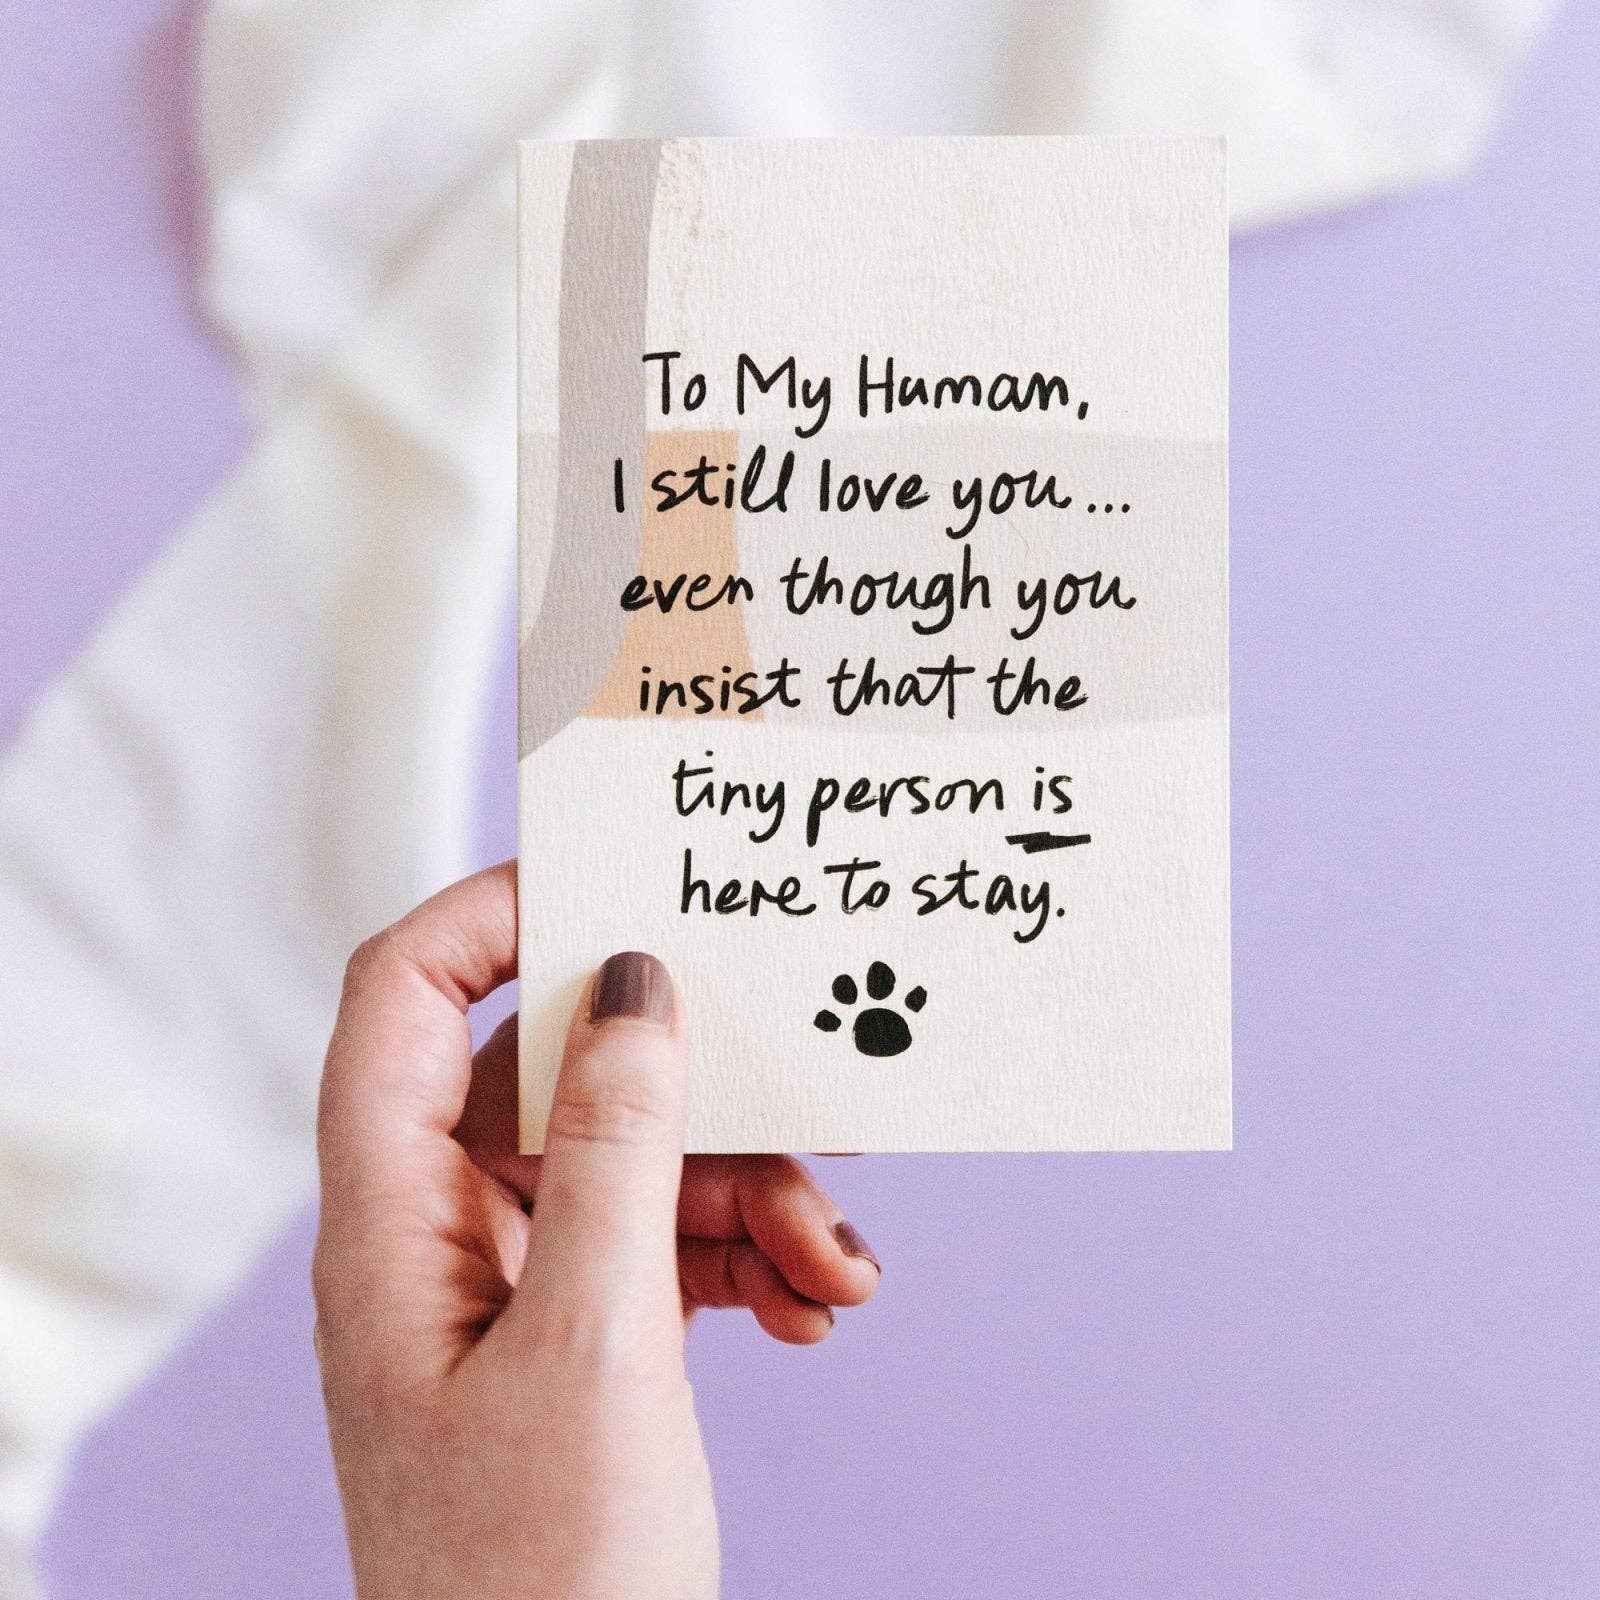 To My Human,
I still love you...
even though you
insist that the
tiny person is
here to stay.